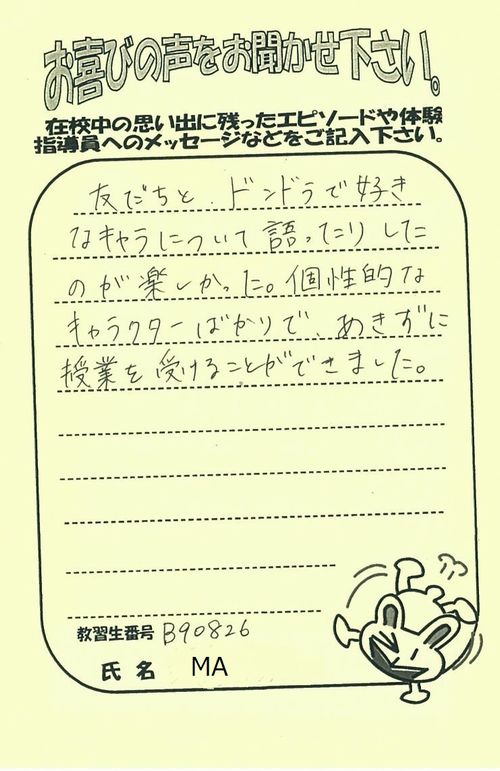 お喜びの声をお聞かせ下さい。
在校中の思い出に残ったエピソードや体験
指導員へのメッセージなどをご記入下さい。
友だちと、ドンドラで好き
なキャラについて語ったりした
のが楽しかった。個性的な
キャラクターばかりで、あきずに
授業を受けることができました。
教習生番号 B90826
氏名 MA